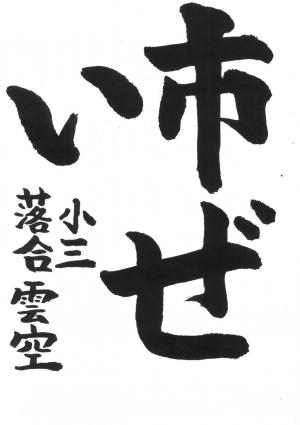 市ぜ
い
小三
落合雲空